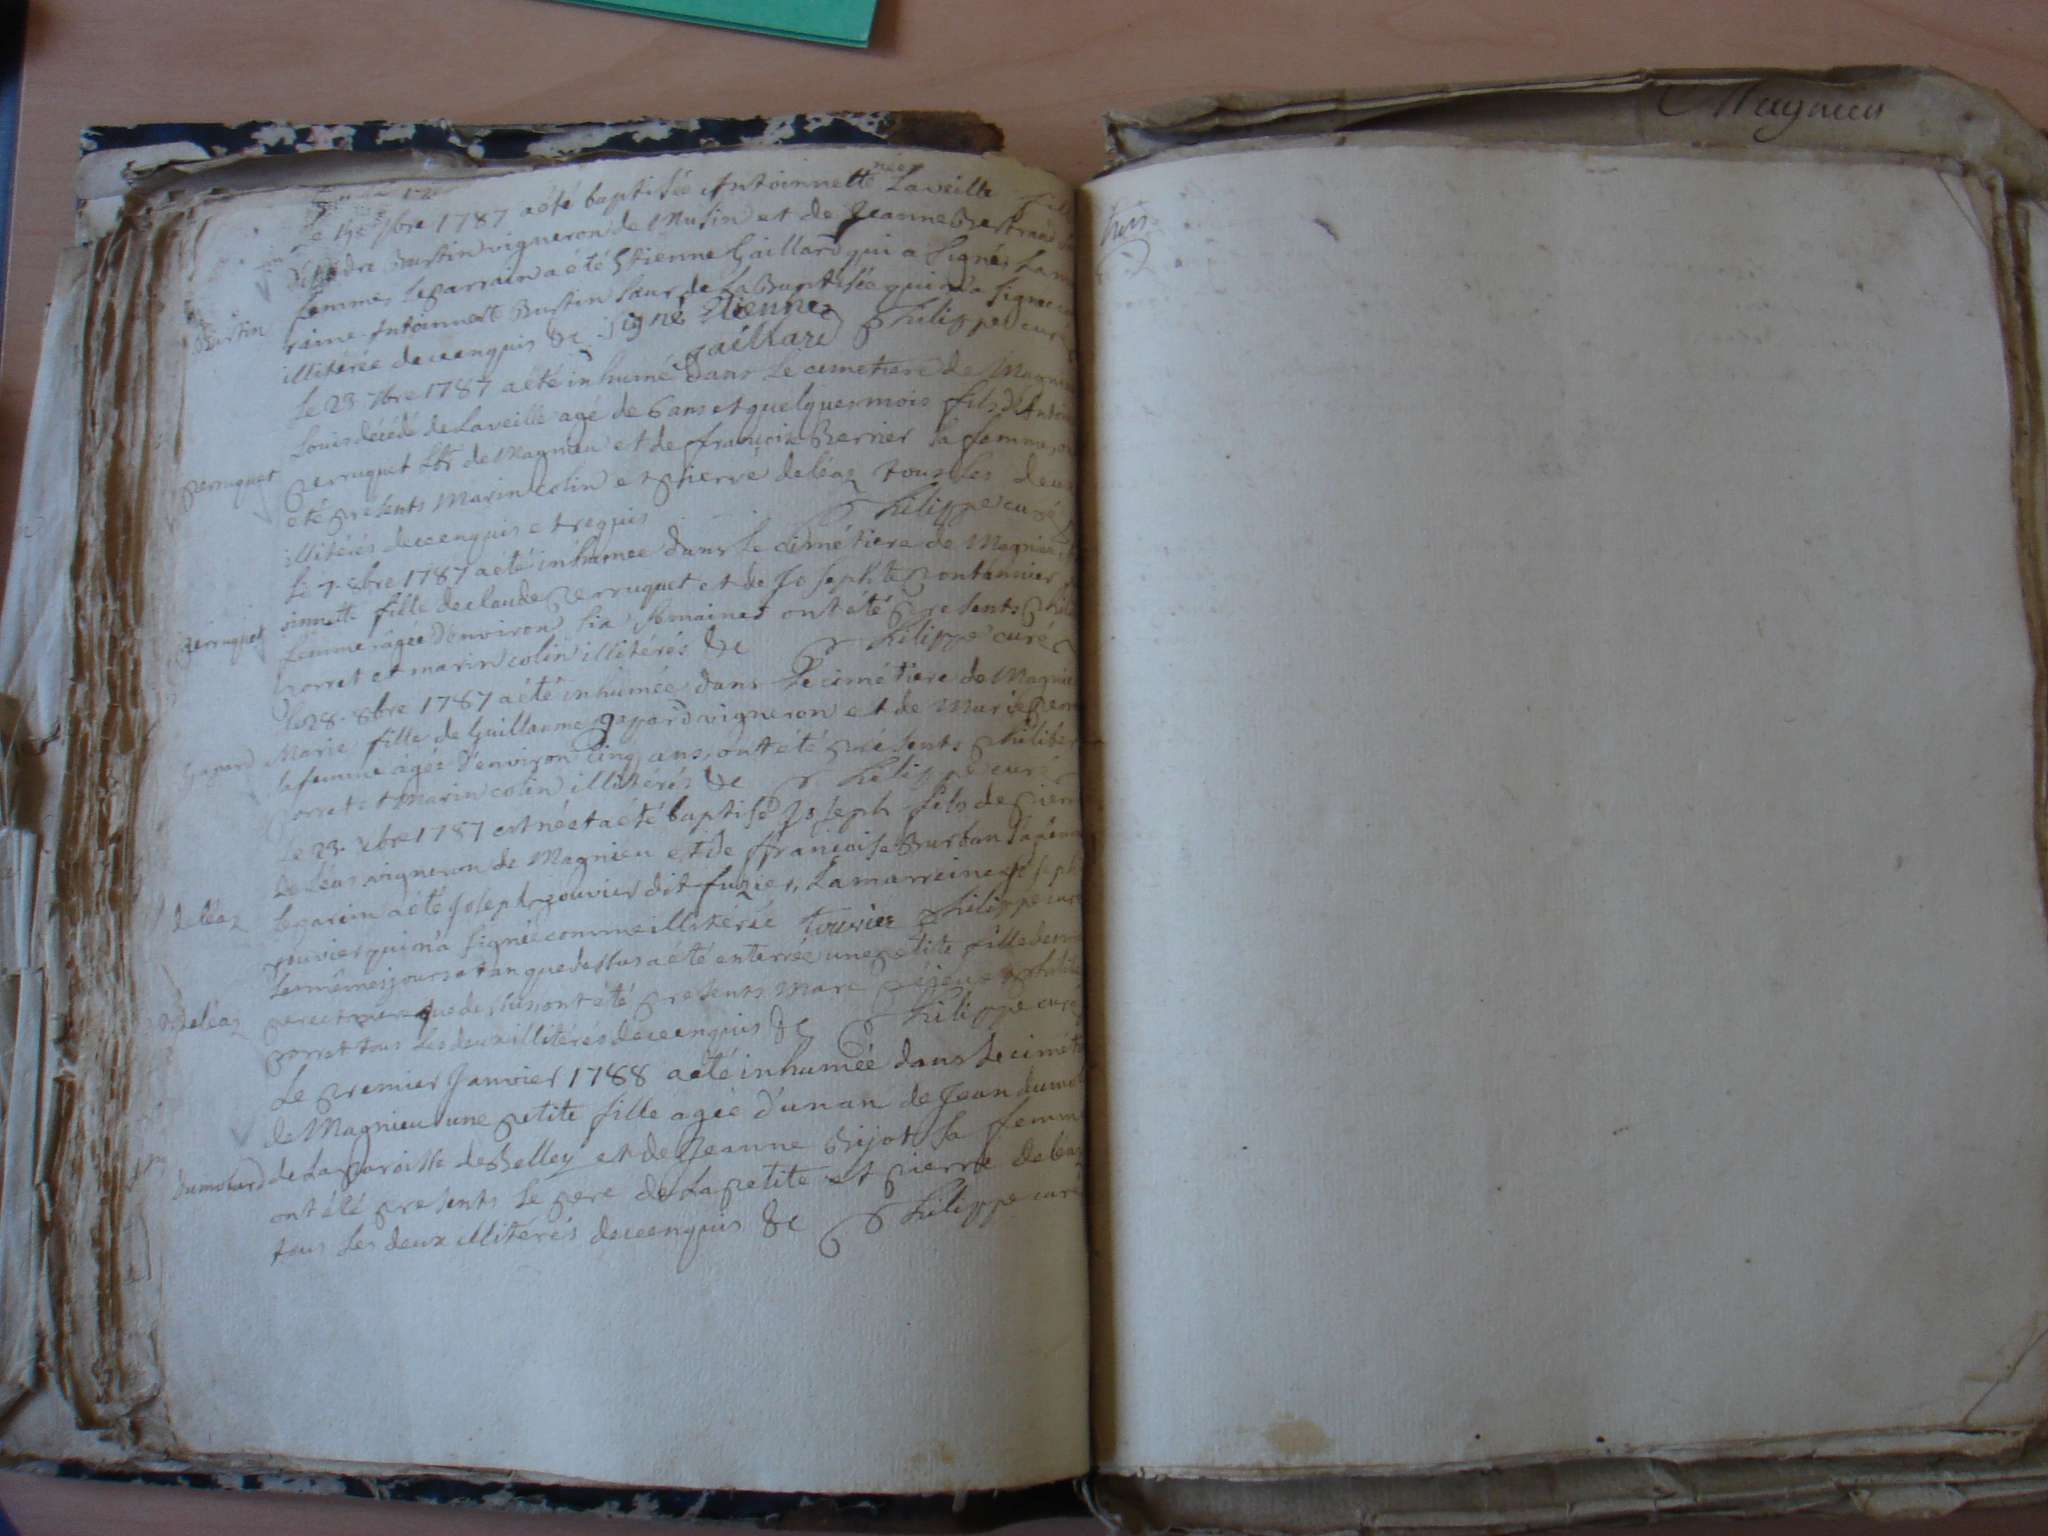 Magnieu
Le 19e 7bre 1787 a été baptisée Antoinette née Laveille
Bustin vigneron de Musin et de Jeanne Bertrand
femme, Le parrain a été Etienne Gaillard qui a Signé, La mar
Bustin
raine Antoinette Bustin Sœur de La Baptisée qui n'a Signé
illitérée de ce enquis &c Signé Etienne
gaillard Philippe curé
Le 23 7bre 1787 a été inhumé dans Le cimetiere de Magnieu
Louis décédé de Laveille agé de 6 ans et quelques mois fils d'Antoi
perruquet
perruquet Lbr de Magnieu et de françoise Berrier sa femme, on
eté presents Marin colin et pierre deléaz tous Les deux
illitérés de ce enquis et requis Philippe curé
Le 7. 8bre 1787 a été inhumée dans Le cimétiere de Magnieu
oinette fille de claude perruquet et de Josephte pontannier
perruquet
femme agée d'environ six semaines ont été presents phili
porret et marin colin illitérés &c Philippe curé
Le 28. 8bre 1787 a été inhumée dans Le cimétiere de Magnieu
Marie fille de Guillaume gapard vigneron et de Marie
Gapard
sa femme agée d'environ cinq ans, ont été présents philiber
porret et marin colin illitérés &c Philippe curé
Le 23. xbre 1787 est né et a été baptisé Joseph fils de pierre
de Léas vigneron de Magnieu et de françoise Burban sa femme
deléaz
Le parrin a été Joseph jouvier dit fuzier, La marreine Joseph
jouvier qui n'a signé comme illitérée touvier Philippe curé
Les mêmes jours et an que dessus a été enterrée une petite fille de
deléaz
pere et mere que dessus ont été presents, Marc pejeux philib
porret tous Les deux illitérés de ce enquis &c Philippe curé
Le premier Janvier 1788 a été inhumée dans Le cimeti
de Magnieu une petite fille agée d'un an de Jean dumol
dumolard
de La paroisse de Belley et de Jeanne Bijot sa femme
ont été presents Le pere de La petite et pierre deléaz
tous Les deux illitérés de ce enquis &c Philippe curé